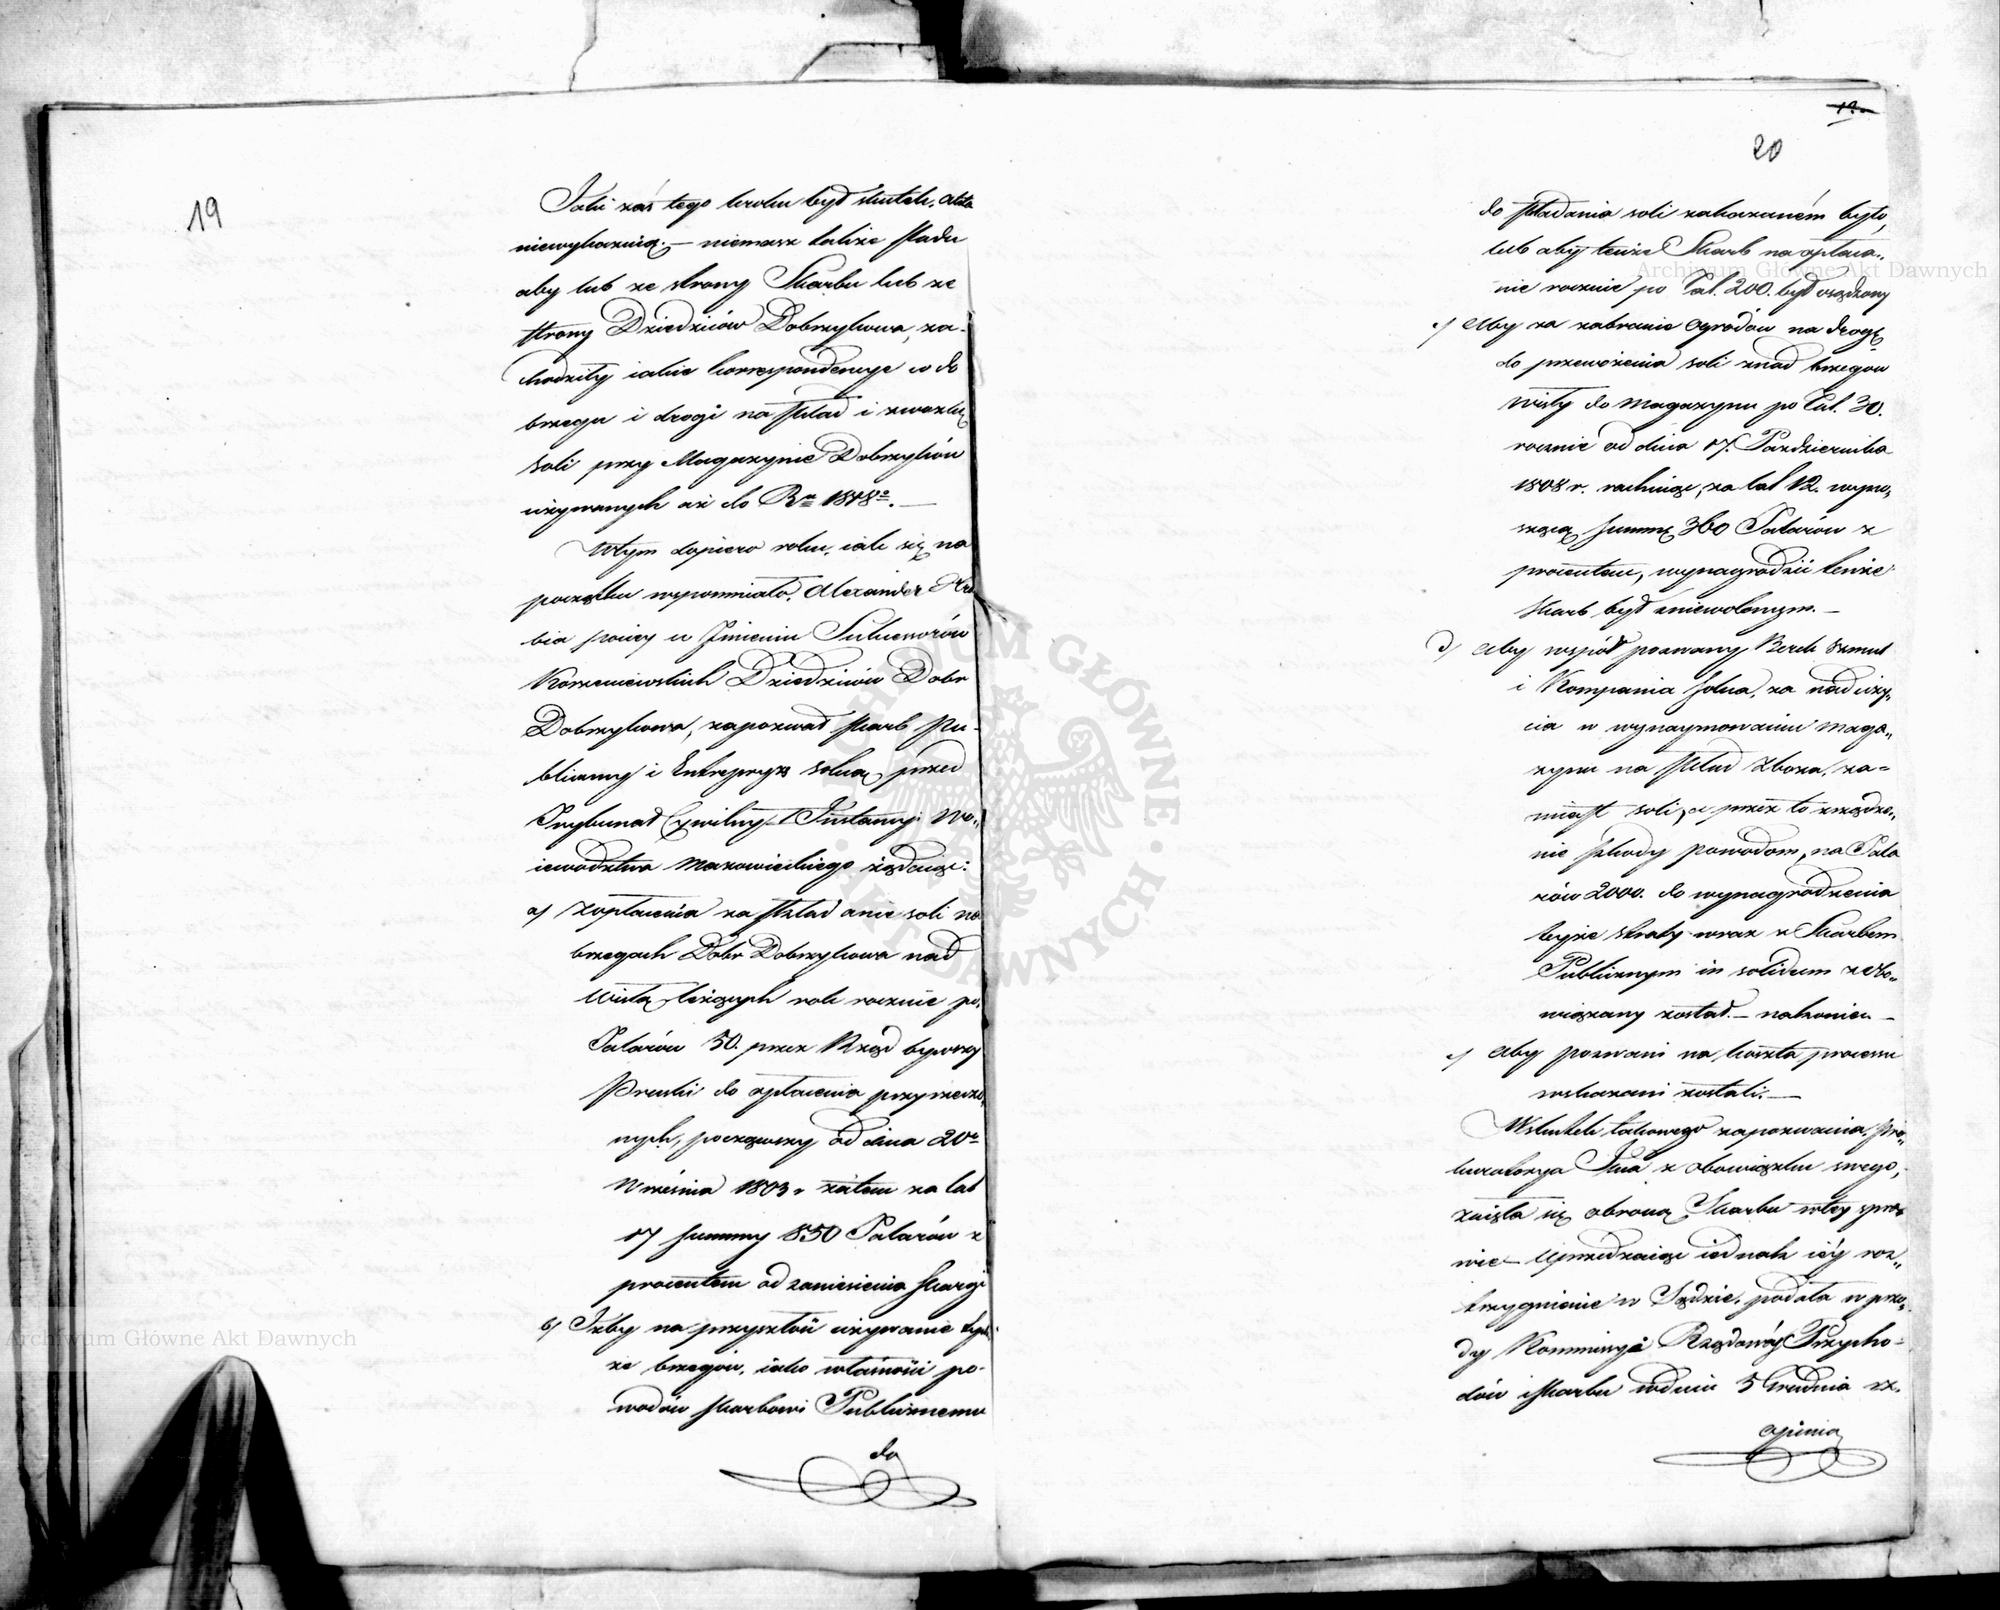 19
Jaki zaś tego kroku był skutek, akta
niewykazuią. — niemasz także śladu
aby lub ze strony Skarbu lub ze
strony Dziedziców Dobrzykowa, za-
chodziły iakie korrespondencye co do
brzegu i drogi na skład i zwózkę
soli przy Magazynie Dobrzyków
używanych aż do Ru 1818o. —
Wtym dopiero roku, iak się na
początku wspomniało, Alexander Hra
bia w Jmieniu Sukcessorów
Dziedziców Dobr
Dobrzykowa, zapozwał Skarb Pu-
bliczny i Entrepryzę solną, przed
Trybunał Cywilny 1 Instancyi Wo-
iewodztwa Mazowieckiego żądaiąc:
a/ Zapłacenia za składanie soli na
brzegach Dobr Dobrzykowa nad
Wisłą leżących rok rocznie po
Talarów 50. przez Rząd bywszy
Pruski do opłacenia przyrzeczo-
nych, począwszy od dnia 20o
Września 1803 r zatem za lat
17 summy 850 Talarów z
procentem od zaniesienia skargi
b/ Jżby na przyszłość używanie tych
że brzegów, iako własności po-
wodów Skarbowi Publicznemu
do
20
do składania soli zakazanem było,
lub aby tenże Skarb na opłaca-
nie rocznie po Tal. 200. był osądzony
c/ Aby za zabranie Ogrodów na drogę
do przewożenia soli znad brzegów
Wisły do Magazynu po Tal. 30.
rocznie od dnia 17. Pazdziernika
1808 r. rachuiąc, za lat 12. wyno-
szącą summę 360 Talarów z
procentem, wynagrodzić tenże
Skarb był zniewolonym. —
d/ Aby współ pozwany Berek Szmul
i Kompania solna, za naduży-
cia w wynaymowaniu Maga-
zynu na skład Zboża, za-
miast soli, a przez to zrządze-
nie szkody powodom, na Tala
rów 2000. do wynagrodzenia
teyże straty wraz z Skarbem
Publicznym in solidum zobo-
wiązany został. — nakoniec —
e/ Aby pozwani na koszta processu
wskazani zostali. —
Wskutek takowego zapozwania, Pro-
kuratorya Jlna z obowiązku swego,
zaięła się obroną Skarbu wtey spra
wie — Uprzedzaiąc iednak iéy roz-
trzygnienie w Sądzie, podała w przo-
dy Kommissyi Rządowéy Przycho-
dów i Skarbu wdniu 5 Grudnia
opinią